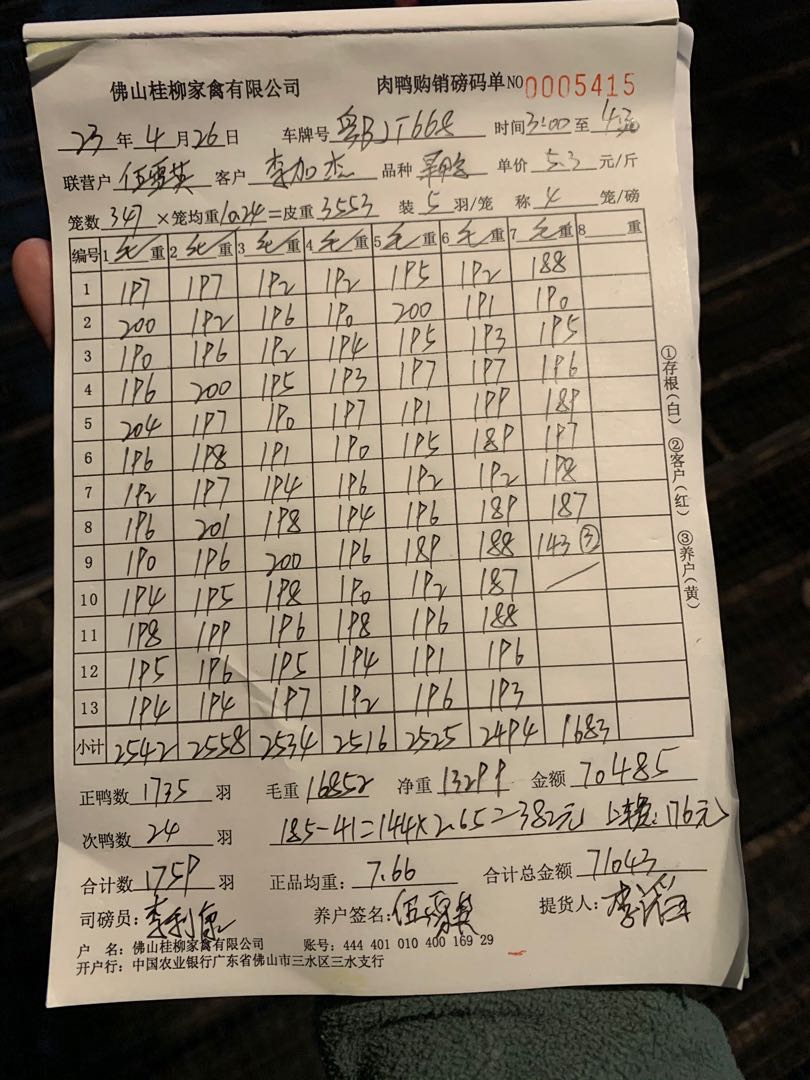 佛山桂柳家禽有限公司 肉鸭购销磅码单 NO 0005415
23年4月26日 车牌号 粤BJT668 时间 3:00 至 4:30
联营户 伍雪英 客户 李加杰 品种 单价 5.3 元/斤
笼数 347 ×笼均重 10.24 =皮重 3553 装 5 羽/笼 称 4 笼/磅
编号 1 毛/重 2 毛/重 3 毛/重 4 毛/重 5 毛/重 6 毛/重 7 毛/重 8 重
1 197 197 192 192 195 192 188
2 200 192 196 190 200 191 190
3 190 196 192 194 195 193 195
4 196 200 195 193 197 197 196
5 204 197 190 197 191 199 189
6 196 198 191 190 195 189 197
7 192 197 194 196 192 192 198
8 196 201 198 194 196 189 187
9 190 196 200 196 189 188 143 ③
10 194 195 198 190 192 187 /
11 198 199 196 198 196 188
12 195 196 195 194 191 196
13 194 194 197 192 196 193
小计 2542 2558 2534 2516 2525 2494 1683
正鸭数 1735 羽 毛重 16852 净重 13299 金额 70485
次鸭数 24 羽 185-41=144×2.65=382元 上车费:176元
合计数 1759 羽 正品均重: 7.66 合计总金额 71043
司磅员: 李利康 养户签名: 伍雪英 提货人: 李
户 名: 佛山桂柳家禽有限公司 账号: 444 401 010 400 169 29
开户行: 中国农业银行广东省佛山市三水区三水支行
①存根(白) ②客户(红) ③养户(黄)